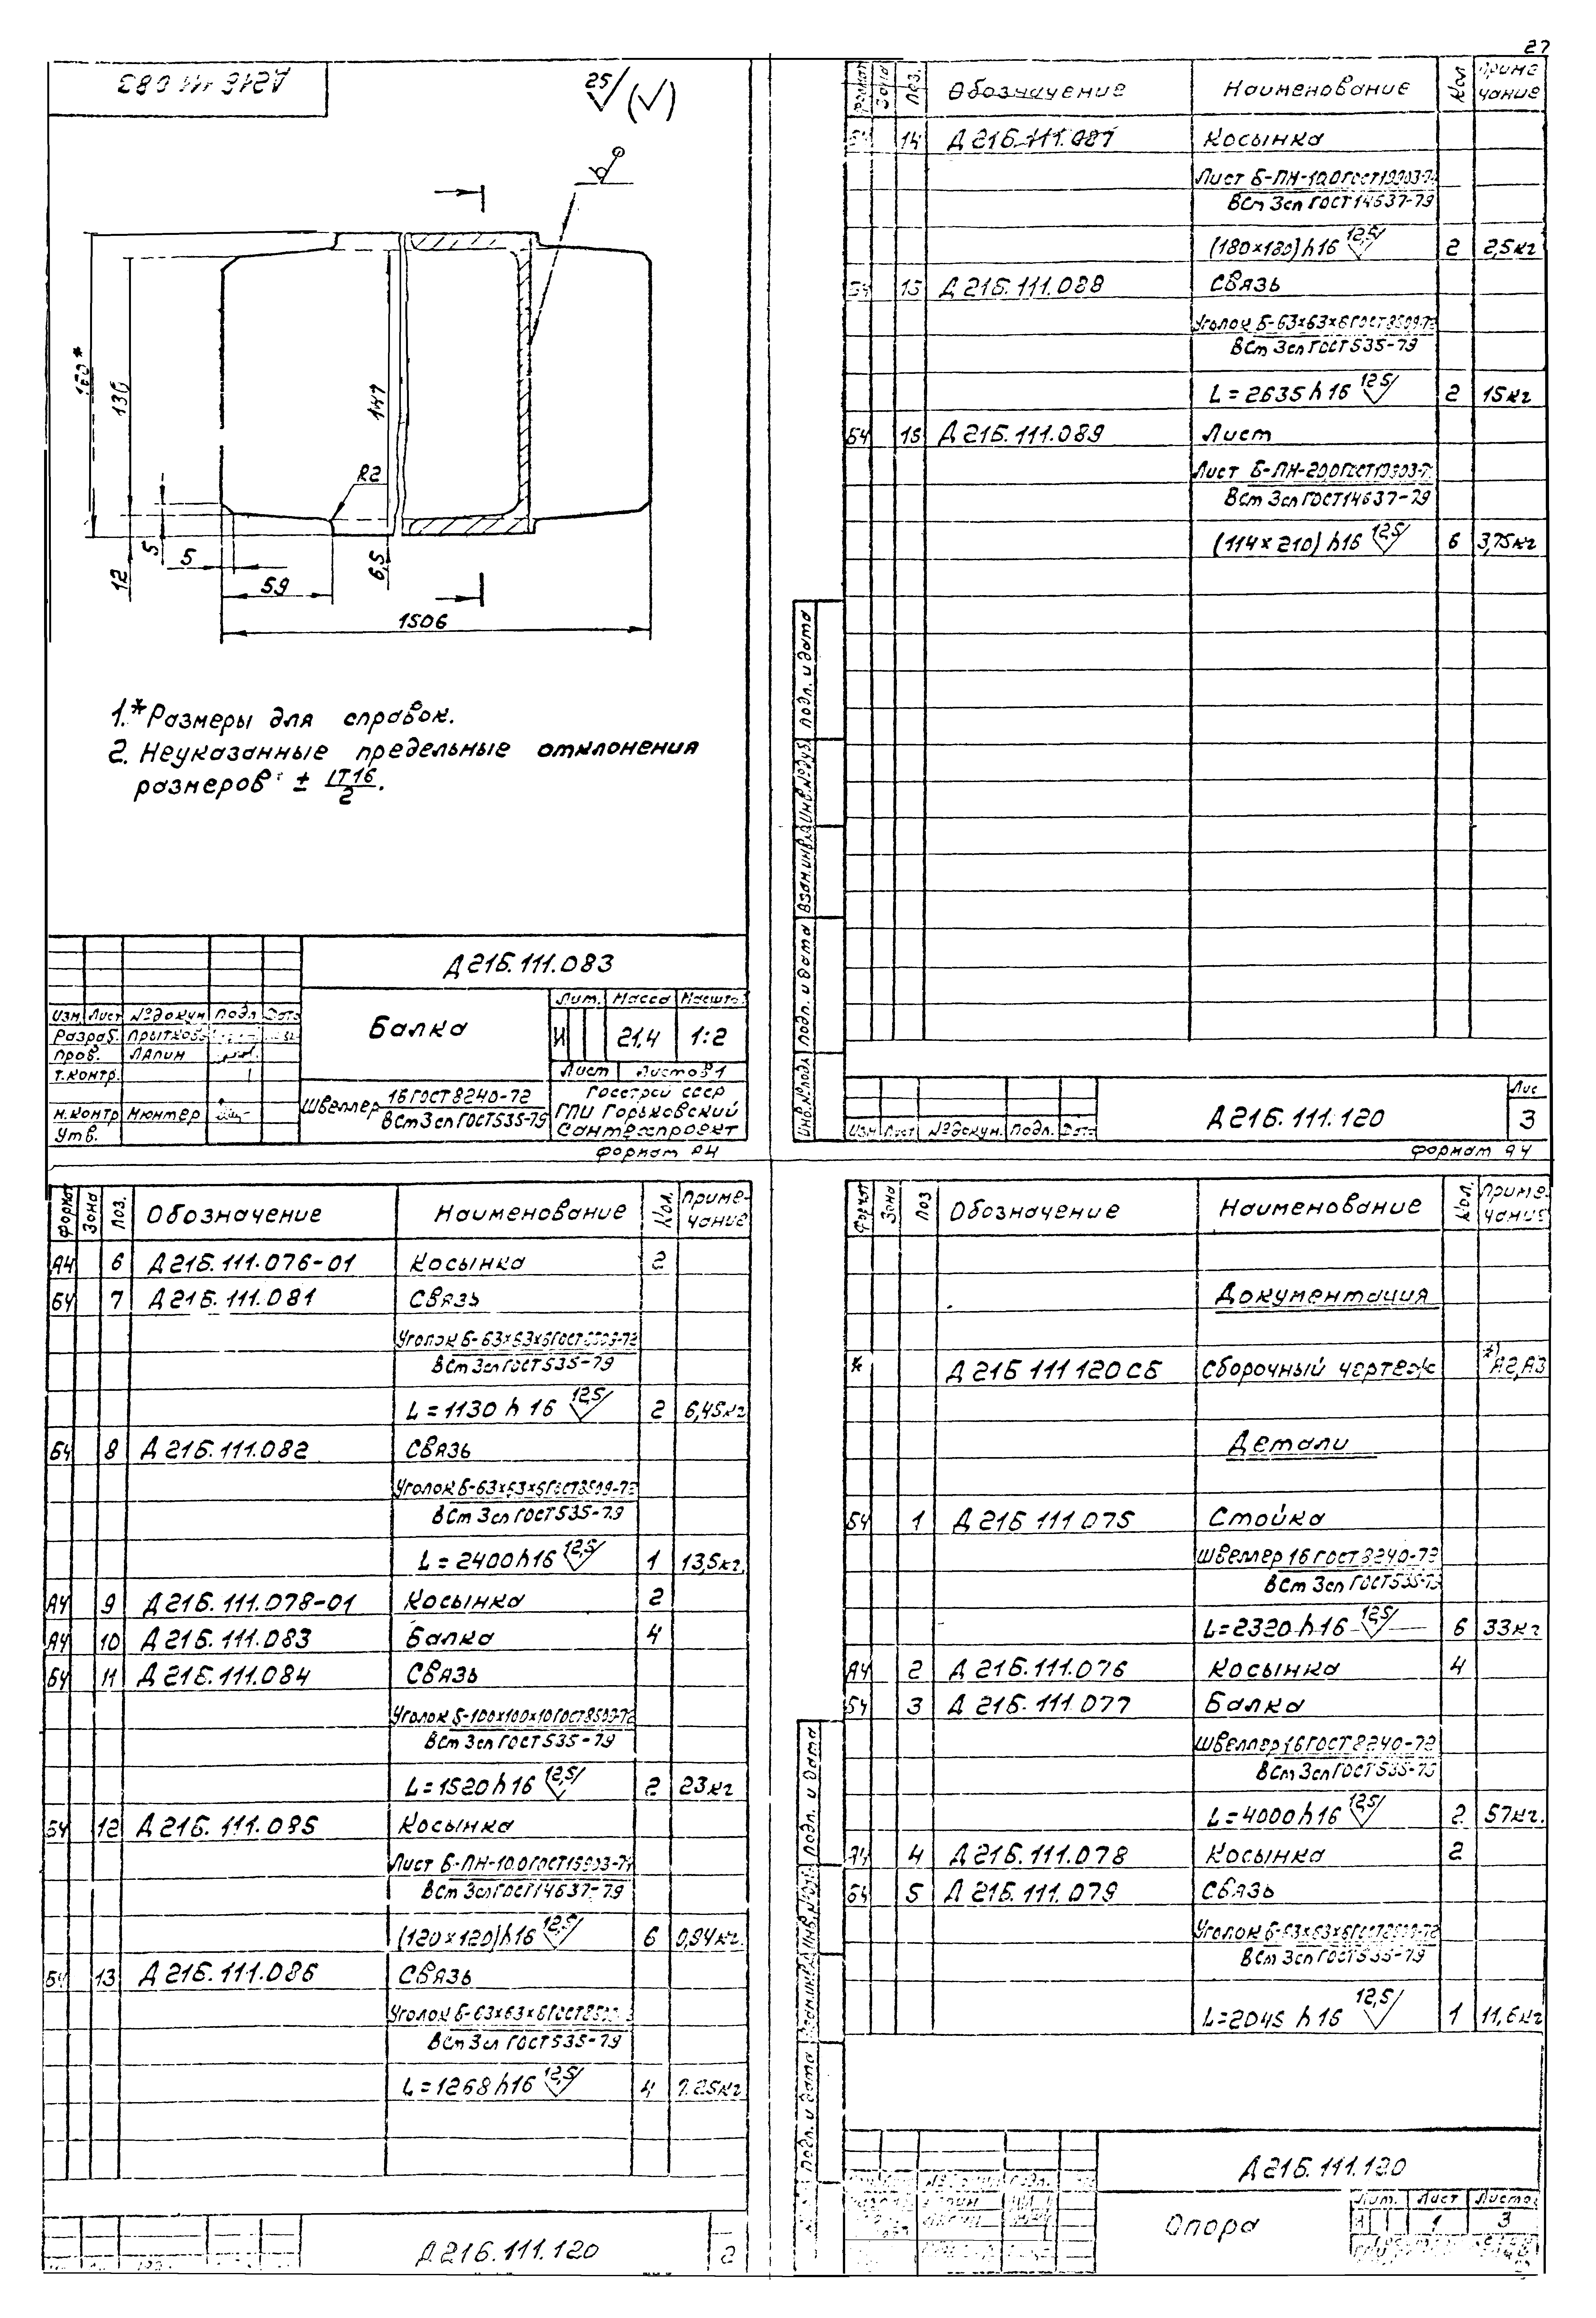 27
Д21Б.111.083
25 (√)
160*
130
147
R2
5
5
12
59
6,5
1506
1.* Размеры для справок.
2. Неуказанные предельные отклонения
размеров: ± IT16/2.
Д21Б.111.083
Балка
Лит. Масса Масштаб
И 21,4 1:2
Лист Листов 1
Изм. Лист № докум. Подп. Дата
Разраб.
Пров. Лапин
Т.контр.
Н.контр. Мюнтер
Утв.
Швеллер 16 ГОСТ 8240-72
ВСт3сп ГОСТ 535-79
Госстрой СССР
ГПИ Горьковский
Сантехпроект
Формат А4
Формат Зона Поз. Обозначение Наименование Кол. Примечание
Б4 14 Д21Б.111.087 Косынка
Лист Б-ПН-10,0 ГОСТ 19903-74
ВСт3сп ГОСТ 14637-79
(180×180) h16 12,5 2 2,5кг
Б4 15 Д21Б.111.088 Связь
Уголок Б-63×63×6 ГОСТ 8509-72
ВСт3сп ГОСТ 535-79
L=2635 h16 12,5 2 15кг
Б4 16 Д21Б.111.089 Лист
Лист Б-ПН-20,0 ГОСТ 19903-74
ВСт3сп ГОСТ 14637-79
(114×210) h16 12,5 6 3,75кг
Инв.№подл. Подп. и дата Взам.инв.№ Инв.№дубл. Подп. и дата
Изм Лист № докум. Подп. Дата
Д21Б.111.120
Лист
3
Формат А4
Формат Зона Поз. Обозначение Наименование Кол. Примечание
А4 6 Д21Б.111.076-01 Косынка 2
Б4 7 Д21Б.111.081 Связь
Уголок Б-63×63×6 ГОСТ 8509-72
ВСт3сп ГОСТ 535-79
L=1130 h16 12,5 2 6,45кг
Б4 8 Д21Б.111.082 Связь
Уголок Б-63×63×6 ГОСТ 8509-72
ВСт3сп ГОСТ 535-79
L=2400 h16 12,5 1 13,5кг.
А4 9 Д21Б.111.078-01 Косынка 2
А4 10 Д21Б.111.083 Балка 4
Б4 11 Д21Б.111.084 Связь
Уголок Б-100×100×10 ГОСТ 8509-72
ВСт3сп ГОСТ 535-79
L=1520 h16 12,5 2 23кг
Б4 12 Д21Б.111.085 Косынка
Лист Б-ПН-10,0 ГОСТ 19903-74
ВСт3сп ГОСТ 14637-79
(120×120) h16 12,5 6 0,94кг.
Б4 13 Д21Б.111.086 Связь
Уголок Б-63×63×6 ГОСТ
ВСт3сп ГОСТ 535-79
L=1268 h16 12,5 4 7,25кг
Д21Б.111.120
2
Формат Зона Поз. Обозначение Наименование Кол. Примечание
Документация
* Д21Б 111 120 СБ Сборочный чертеж *) А2,А3
Детали
Б4 1 Д21Б 111 075 Стойка
Швеллер 16 ГОСТ 8240-72
ВСт3сп ГОСТ 535-79
L=2320 h16 12,5 6 33кг
А4 2 Д21Б.111.076 Косынка 4
Б4 3 Д21Б.111.077 Балка
Швеллер 16 ГОСТ 8240-72
ВСт3сп ГОСТ 535-79
L=4000 h16 12,5 2 57кг.
А4 4 Д21Б.111.078 Косынка 2
Б4 5 Д21Б.111.079 Связь
Уголок Б-63×63×6 ГОСТ 8509-72
ВСт3сп ГОСТ 535-79
L=2045 h16 12,5 1 11,6кг
Подп. и дата Взам.инв.№ Инв.№дубл. Подп. и дата
Д21Б.111.120
Опора
Лит. Лист Листов
И 1 3